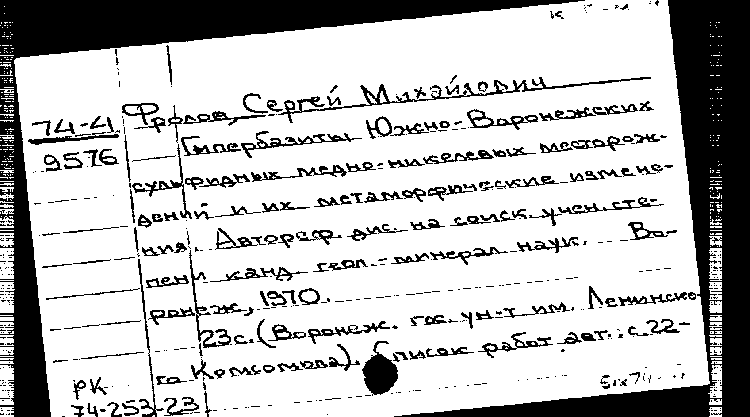 74-4 Фролов, Сергей Михайлович
9576 Гипербазиты Южно-Воронежских
сульфидных медно-никелевых месторож-
дений и их метаморфические измене-
ния. Автореф. дис. на соиск. учен. сте-
пени канд. геол.-минерал. наук. Во-
ронеж, 1970.
23с. (Воронеж. гос. ун-т им. Ленинско-
го Комсомола). Список работ авт.: с. 22-
РК
74-253-23